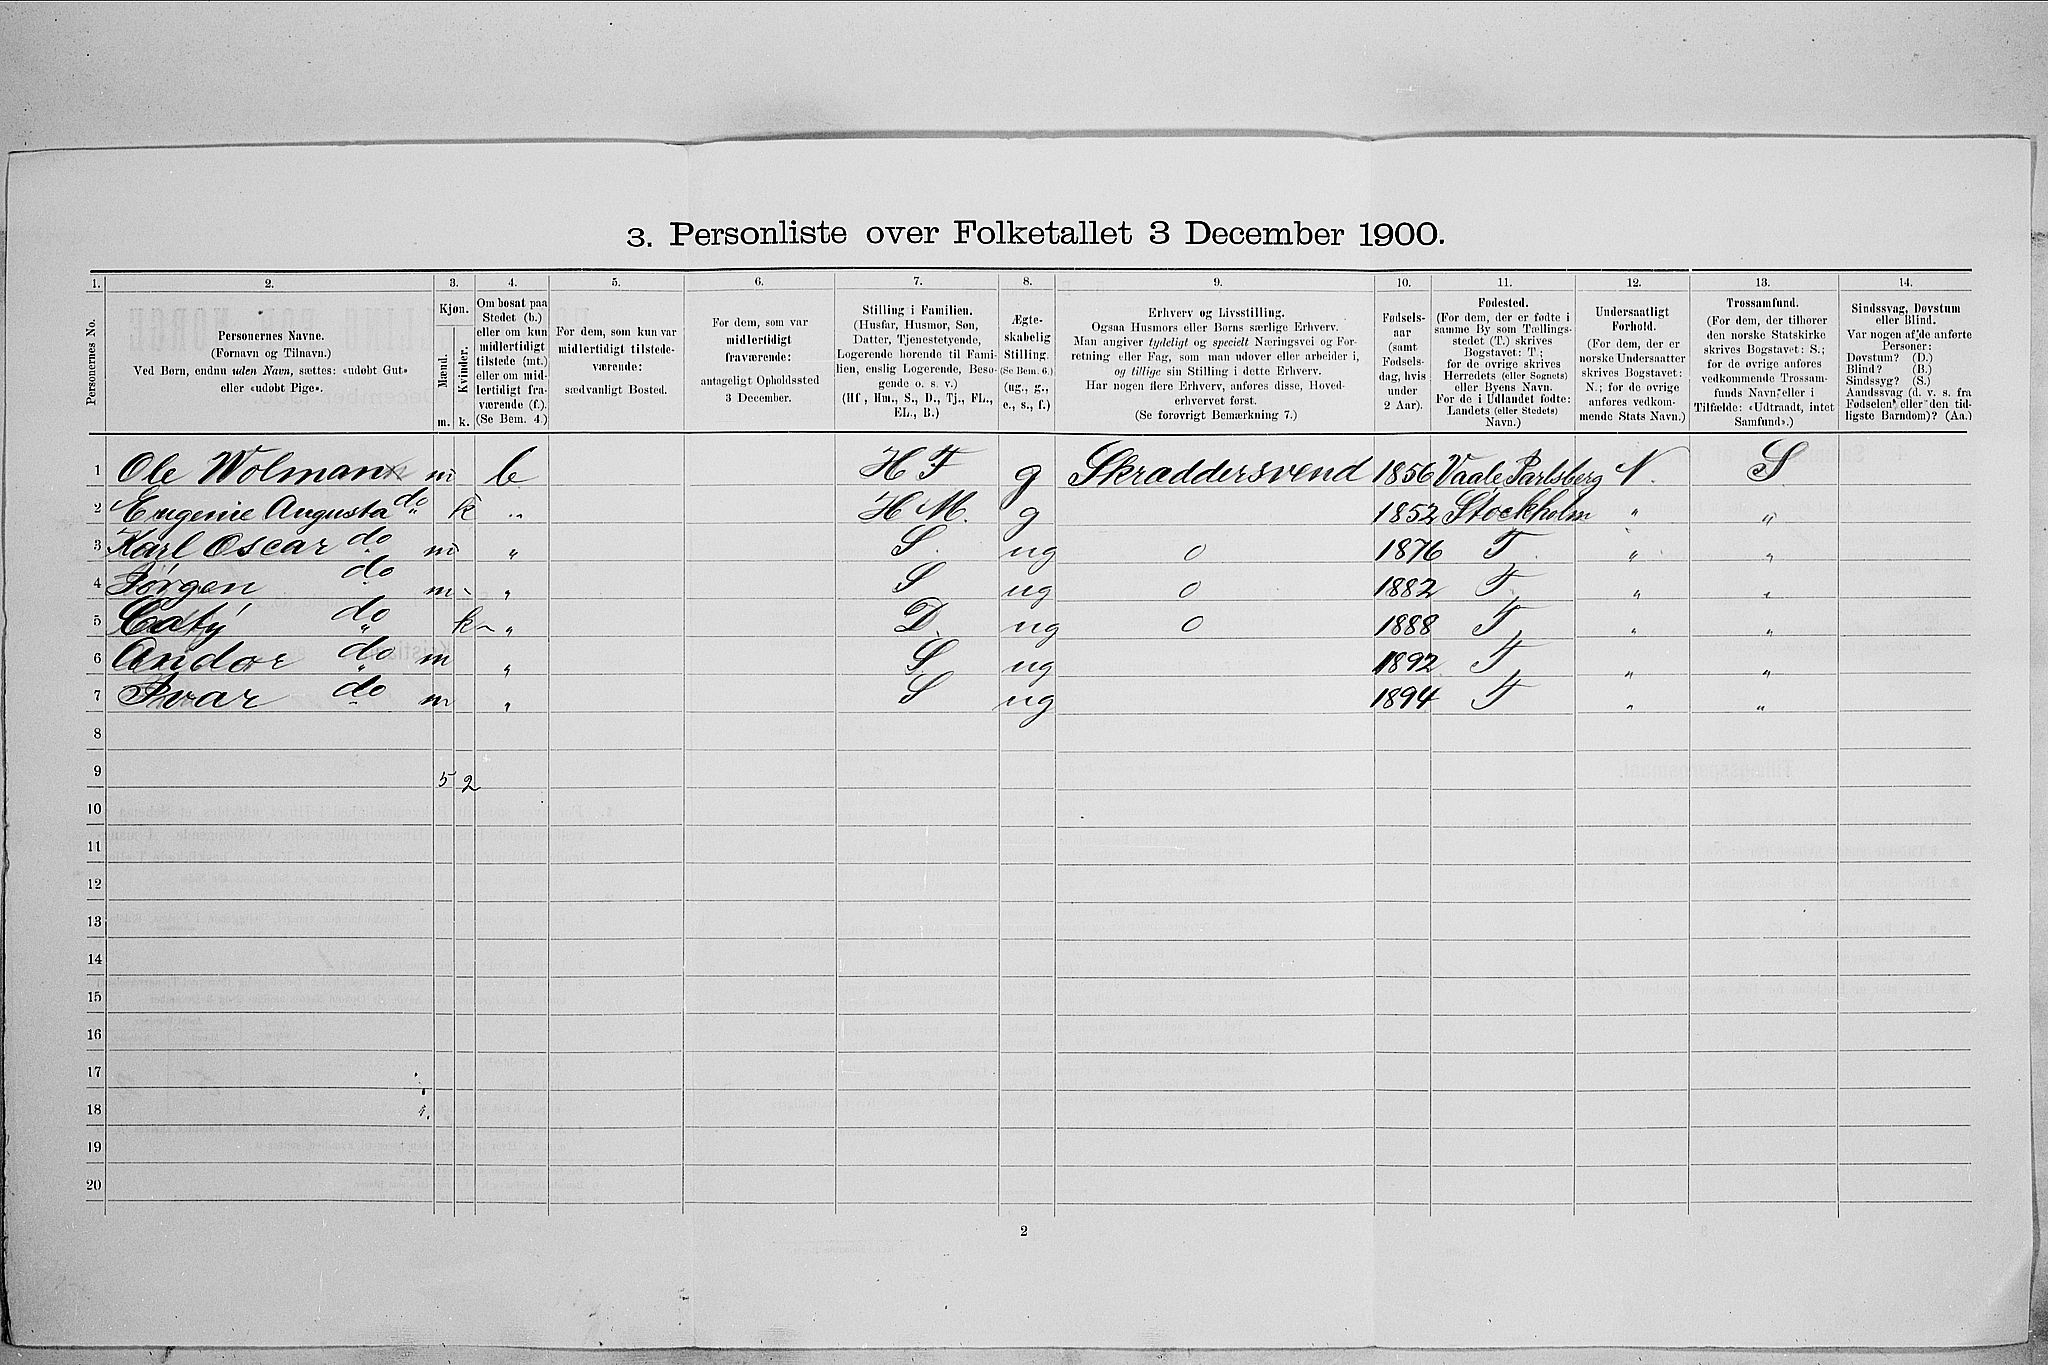 3. Personliste over Folketallet 3 December 1900.
1. 2. 3. 4. 5. 6. 7. 8. 9. 10. 11. 12. 13. 14.
Personernes No.
Personernes Navne.
(Fornavn og Tilnavn.)
Ved Børn, endnu uden Navn, sættes: «udøbt Gut»
eller «udøbt Pige».
Kjøn.
Mænd.
Kvinder.
m. k.
Om bosat paa
Stedet (b.)
eller om kun
midlertidigt
tilstede (mt.)
eller om mid-
lertidigt fra-
værende (f.).
(Se Bem. 4.)
For dem, som kun var
midlertidigt tilstede-
værende:
sædvanligt Bosted.
For dem, som var
midlertidigt
fraværende:
antageligt Opholdssted
3 December.
Stilling i Familien.
(Husfar, Husmor, Søn,
Datter, Tjenestetyende,
Logerende hørende til Fami-
lien, enslig Logerende, Besø-
gende o. s. v.)
(Hf., Hm., S., D., Tj., FL.,
EL., B.)
Ægte-
skabelig
Stilling.
(Se Bem. 6.)
(ug., g.,
e., s., f.)
Erhverv og Livsstilling.
Ogsaa Husmors eller Børns særlige Erhverv.
Man angiver tydeligt og specielt Næringsvei og For-
retning eller Fag, som man udøver eller arbeider i,
og tillige sin Stilling i dette Erhverv.
Har nogen flere Erhverv, anføres disse, Hoved-
erhvervet først.
(Se forøvrigt Bemærkning 7.)
Fødsels-
aar
(samt
Fødsels-
dag, hvis
under
2 Aar).
Fødested.
(For dem, der er fødte i
samme By som Tællings-
stedet (T.) skrives
Bogstavet: T.;
for de øvrige skrives
Herredets (eller Sognets)
eller Byens Navn.
For de i Udlandet fødte:
Landets (eller Stedets)
Navn.)
Undersaatligt
Forhold.
(For dem, der er
norske Undersaatter
skrives Bogstavet:
N.; for de øvrige
anføres vedkom-
mende Stats Navn.)
Trossamfund.
(For dem, der tilhører
den norske Statskirke
skrives Bogstavet: S.;
for de øvrige anføres
vedkommende Trossam-
funds Navn, eller i
Tilfælde: «Udtraadt, intet
Samfund».)
Sindssvag, Døvstum
eller Blind.
Var nogen af de anførte
Personer:
Døvstum? (D.)
Blind? (B.)
Sindssyg? (S.)
Aandssvag (d. v. s. fra
Fødselen eller den tid-
ligste Barndom)? (Aa.)
1 Ole Wolman m b H F g Skraddersvend 1856 Vaale Jarlsberg N. S
2 Eugenie Augusta do k „ H M. g 1852 Stockholm „ „
3 Karl Oscar do m „ S. ug 0 1876 T. „ „
4 Jørgen do m „ S ug 0 1882 T „ „
5 Caty do k „ D ug 0 1888 T „ „
6 Andor do m „ S ug 1892 T „ „
7 Ivar do m „ S ug 1894 T „ „
8
9 5 2
10
11
12
13
14
15
16
17
18
19
20
2